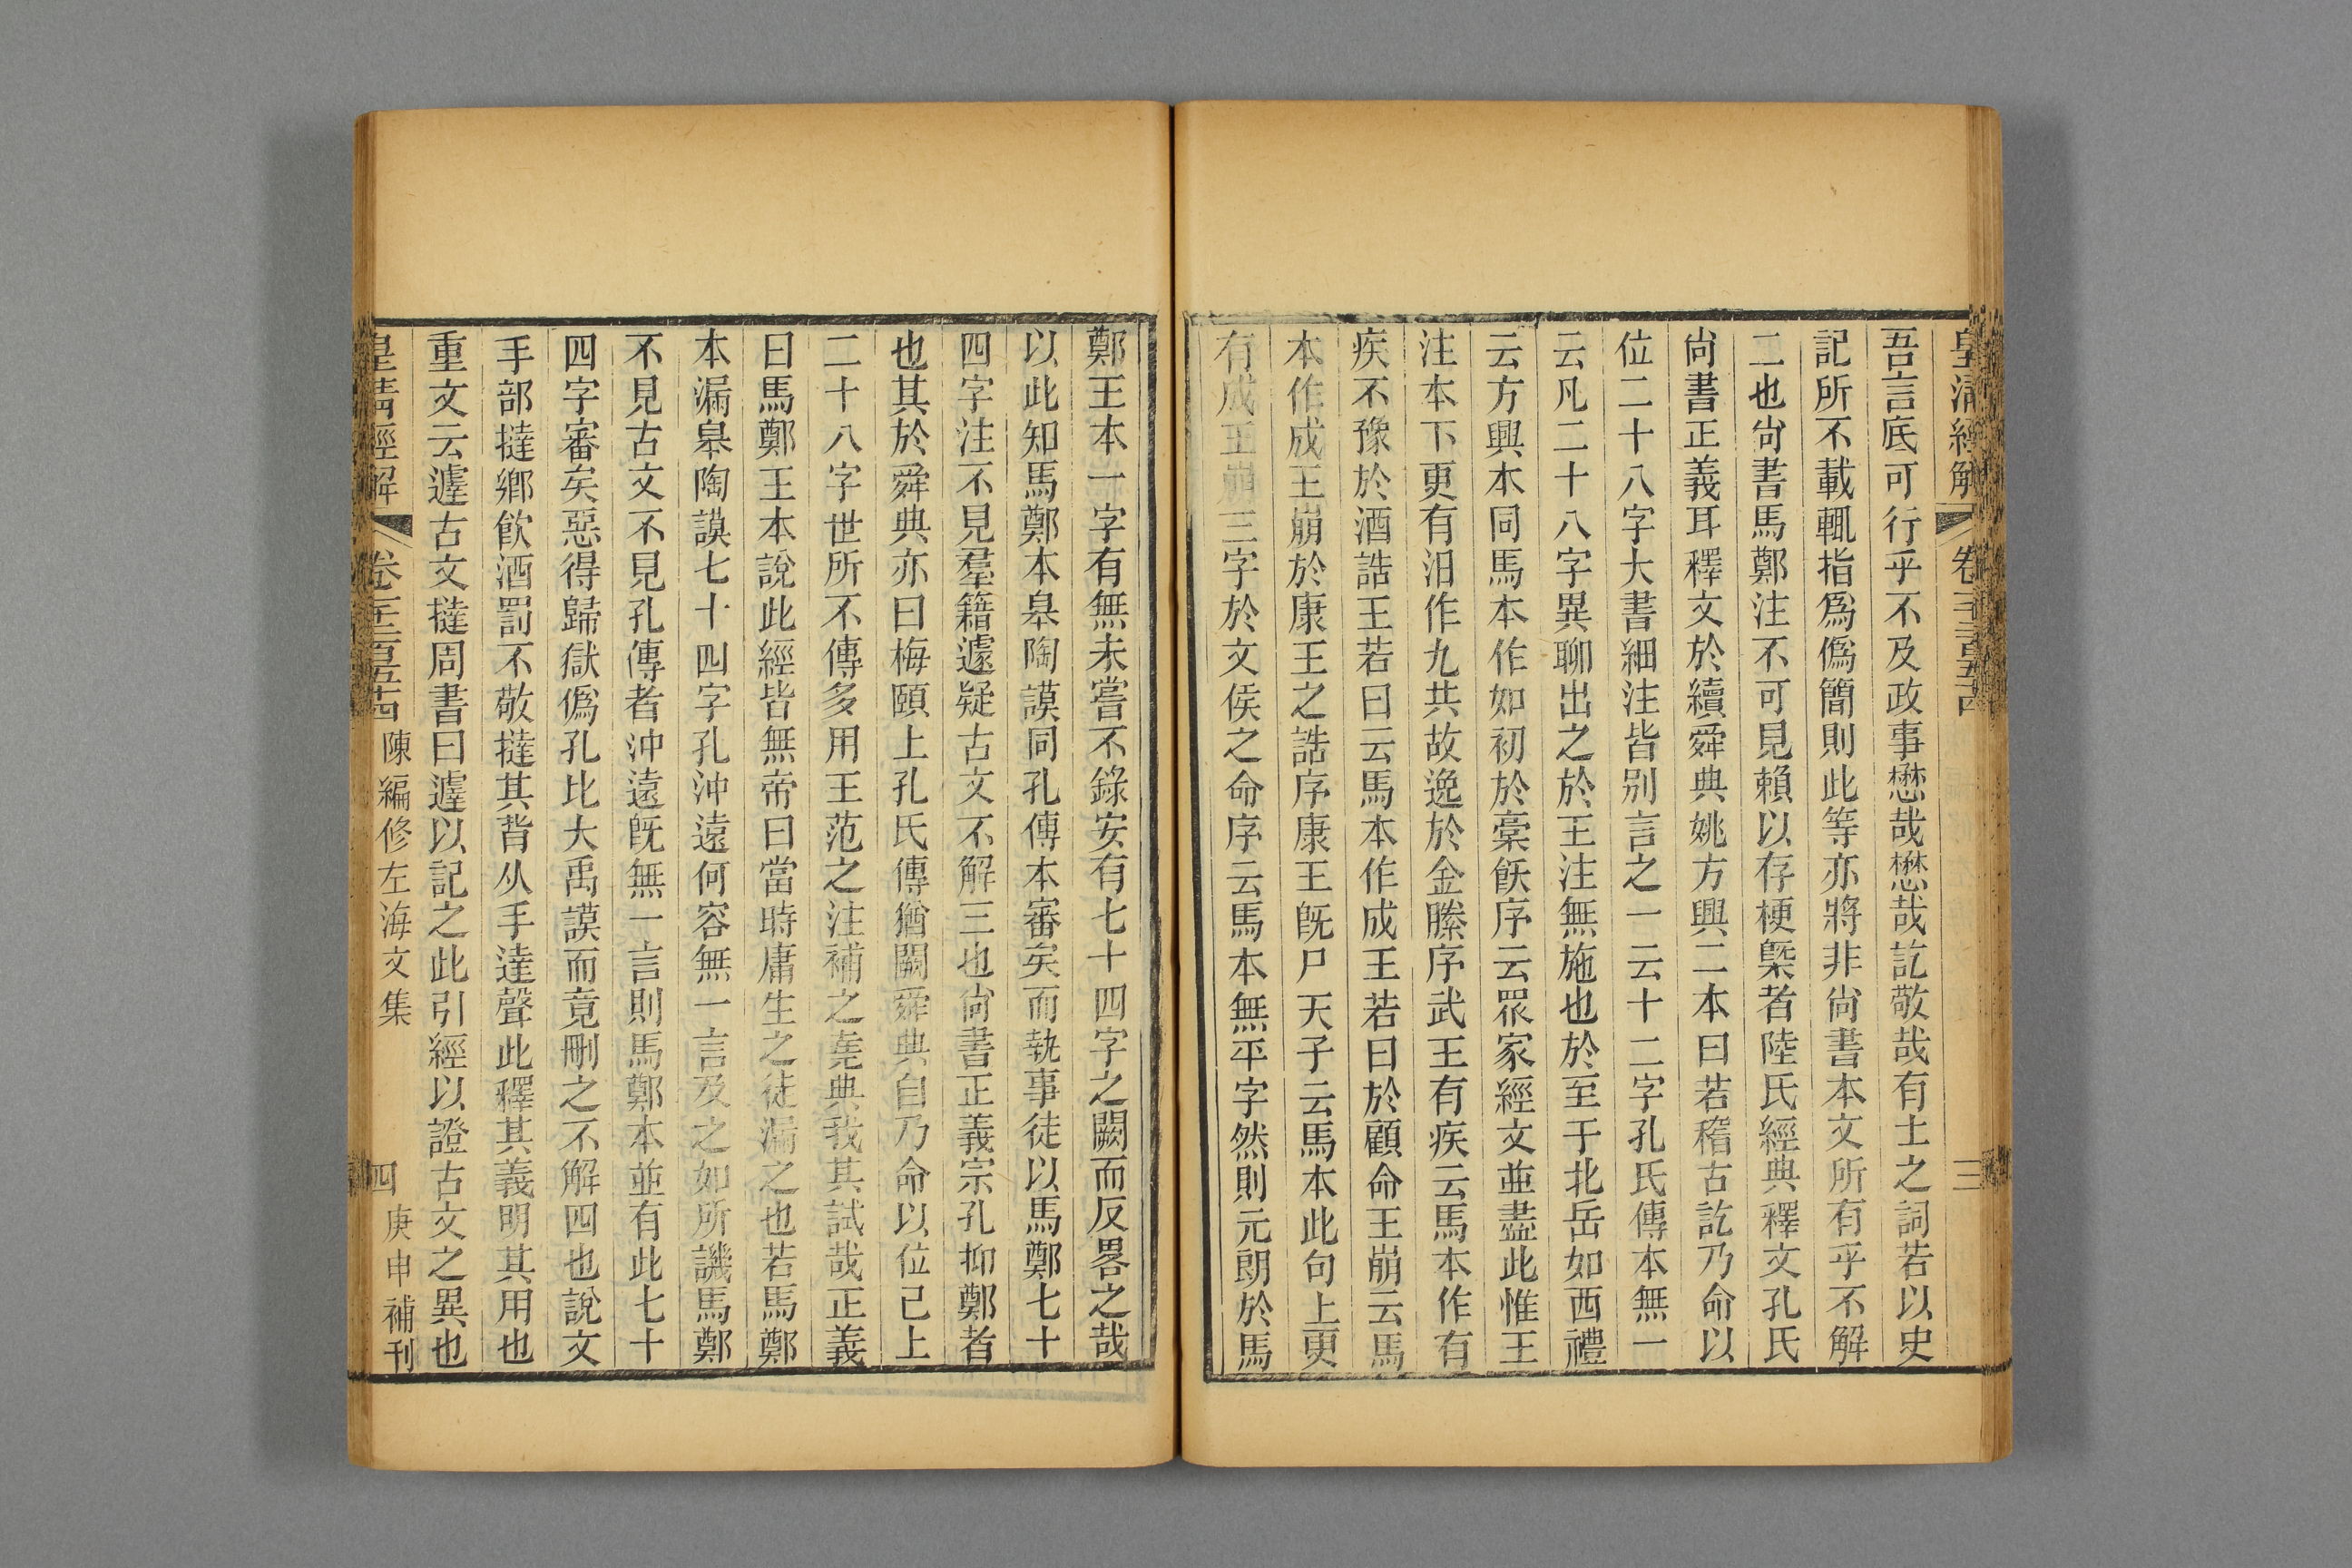 皇清經解
卷
三
吾言底可行乎不及政事懋哉懋哉訖敬哉哉有土之詞若以史
記所不載輒指爲僞簡則此等亦將非尙書本文所有乎不解
二也尙書馬鄭注不可見賴以存梗槩者陸氏經典釋文孔氏
尙書正義耳釋文於續舜典姚方興二本曰若稽古訖乃命以
位二十八字大書細注皆别言之一云十二字孔氏傳本無一
云凡二十八字異聊出之於王注無施也於至于北岳如西禮
云方興本同馬本作如初於槀飫序云眾家經文並盡此惟王
注本下更有汨作九共故逸於金縢序武王有疾云馬本作有
疾不豫於酒誥王若曰云馬本作成王若曰於顧命王崩云馬
本作成王崩於康王之誥序康王旣尸天子云馬本此句上更
有成王崩三字於文侯之命序云馬本無平字然則元朗於馬
鄭王本一字有無未嘗不錄安有七十四字之闕而反畧之哉
以此知馬鄭本皋陶謨同孔傳本審矣而執事徒以馬鄭七十
四字注不見羣籍遽疑古文不解三也尙書正義宗孔抑鄭者
也其於舜典亦曰梅頤上孔氏傳猶闕舜典自乃命以位已上
二十八字世所不傳多用王范之注補之堯典我其試哉正義
曰馬鄭王本說此經皆無帝曰當時庸生之徒漏之也若馬鄭
本漏皋陶謨七十四字孔沖遠何容無一言及之如所譏馬鄭
不見古文不見孔傳者沖遠旣無一言則馬鄭本並有此七十
四字審矣惡得歸獄僞孔比大禹謨而竟刪之不解四也說文
手部撻鄉飮酒罰不敬撻其背从手達聲此釋其義明其用也
重文云𨔶古文撻周書曰𨔶以記之此引經以證古文之異也
皇清經解
卷一千二百五十四
陳編修左海文集
四
庚申補刊